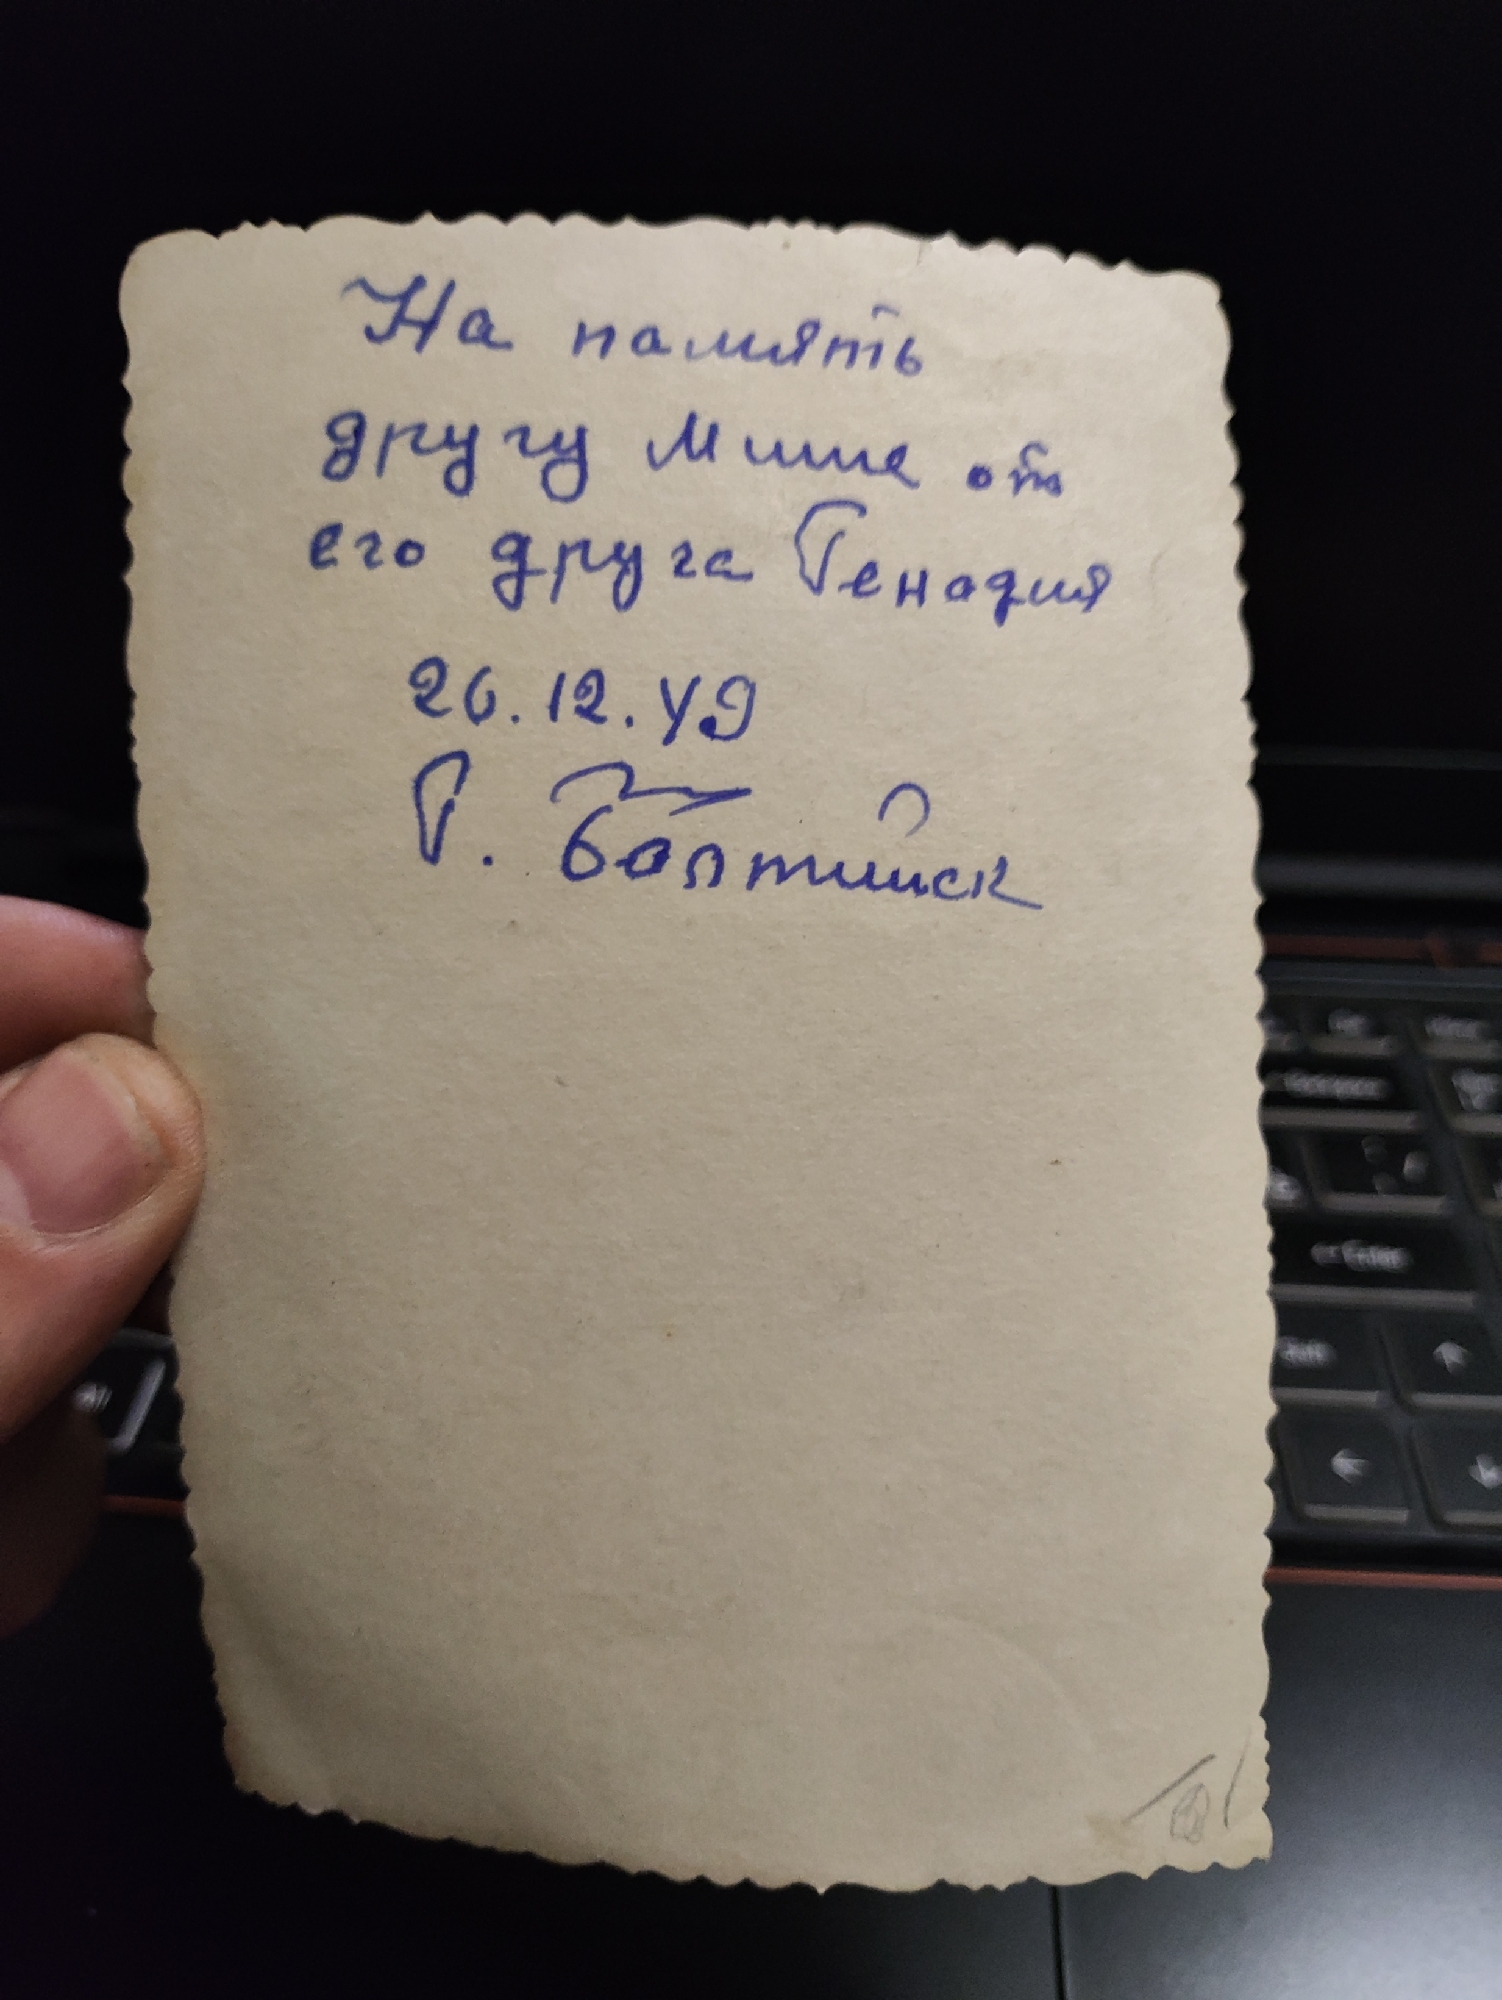 На память
другу Мише от
его друга Генадия
26.12.49
Г. Балтийск